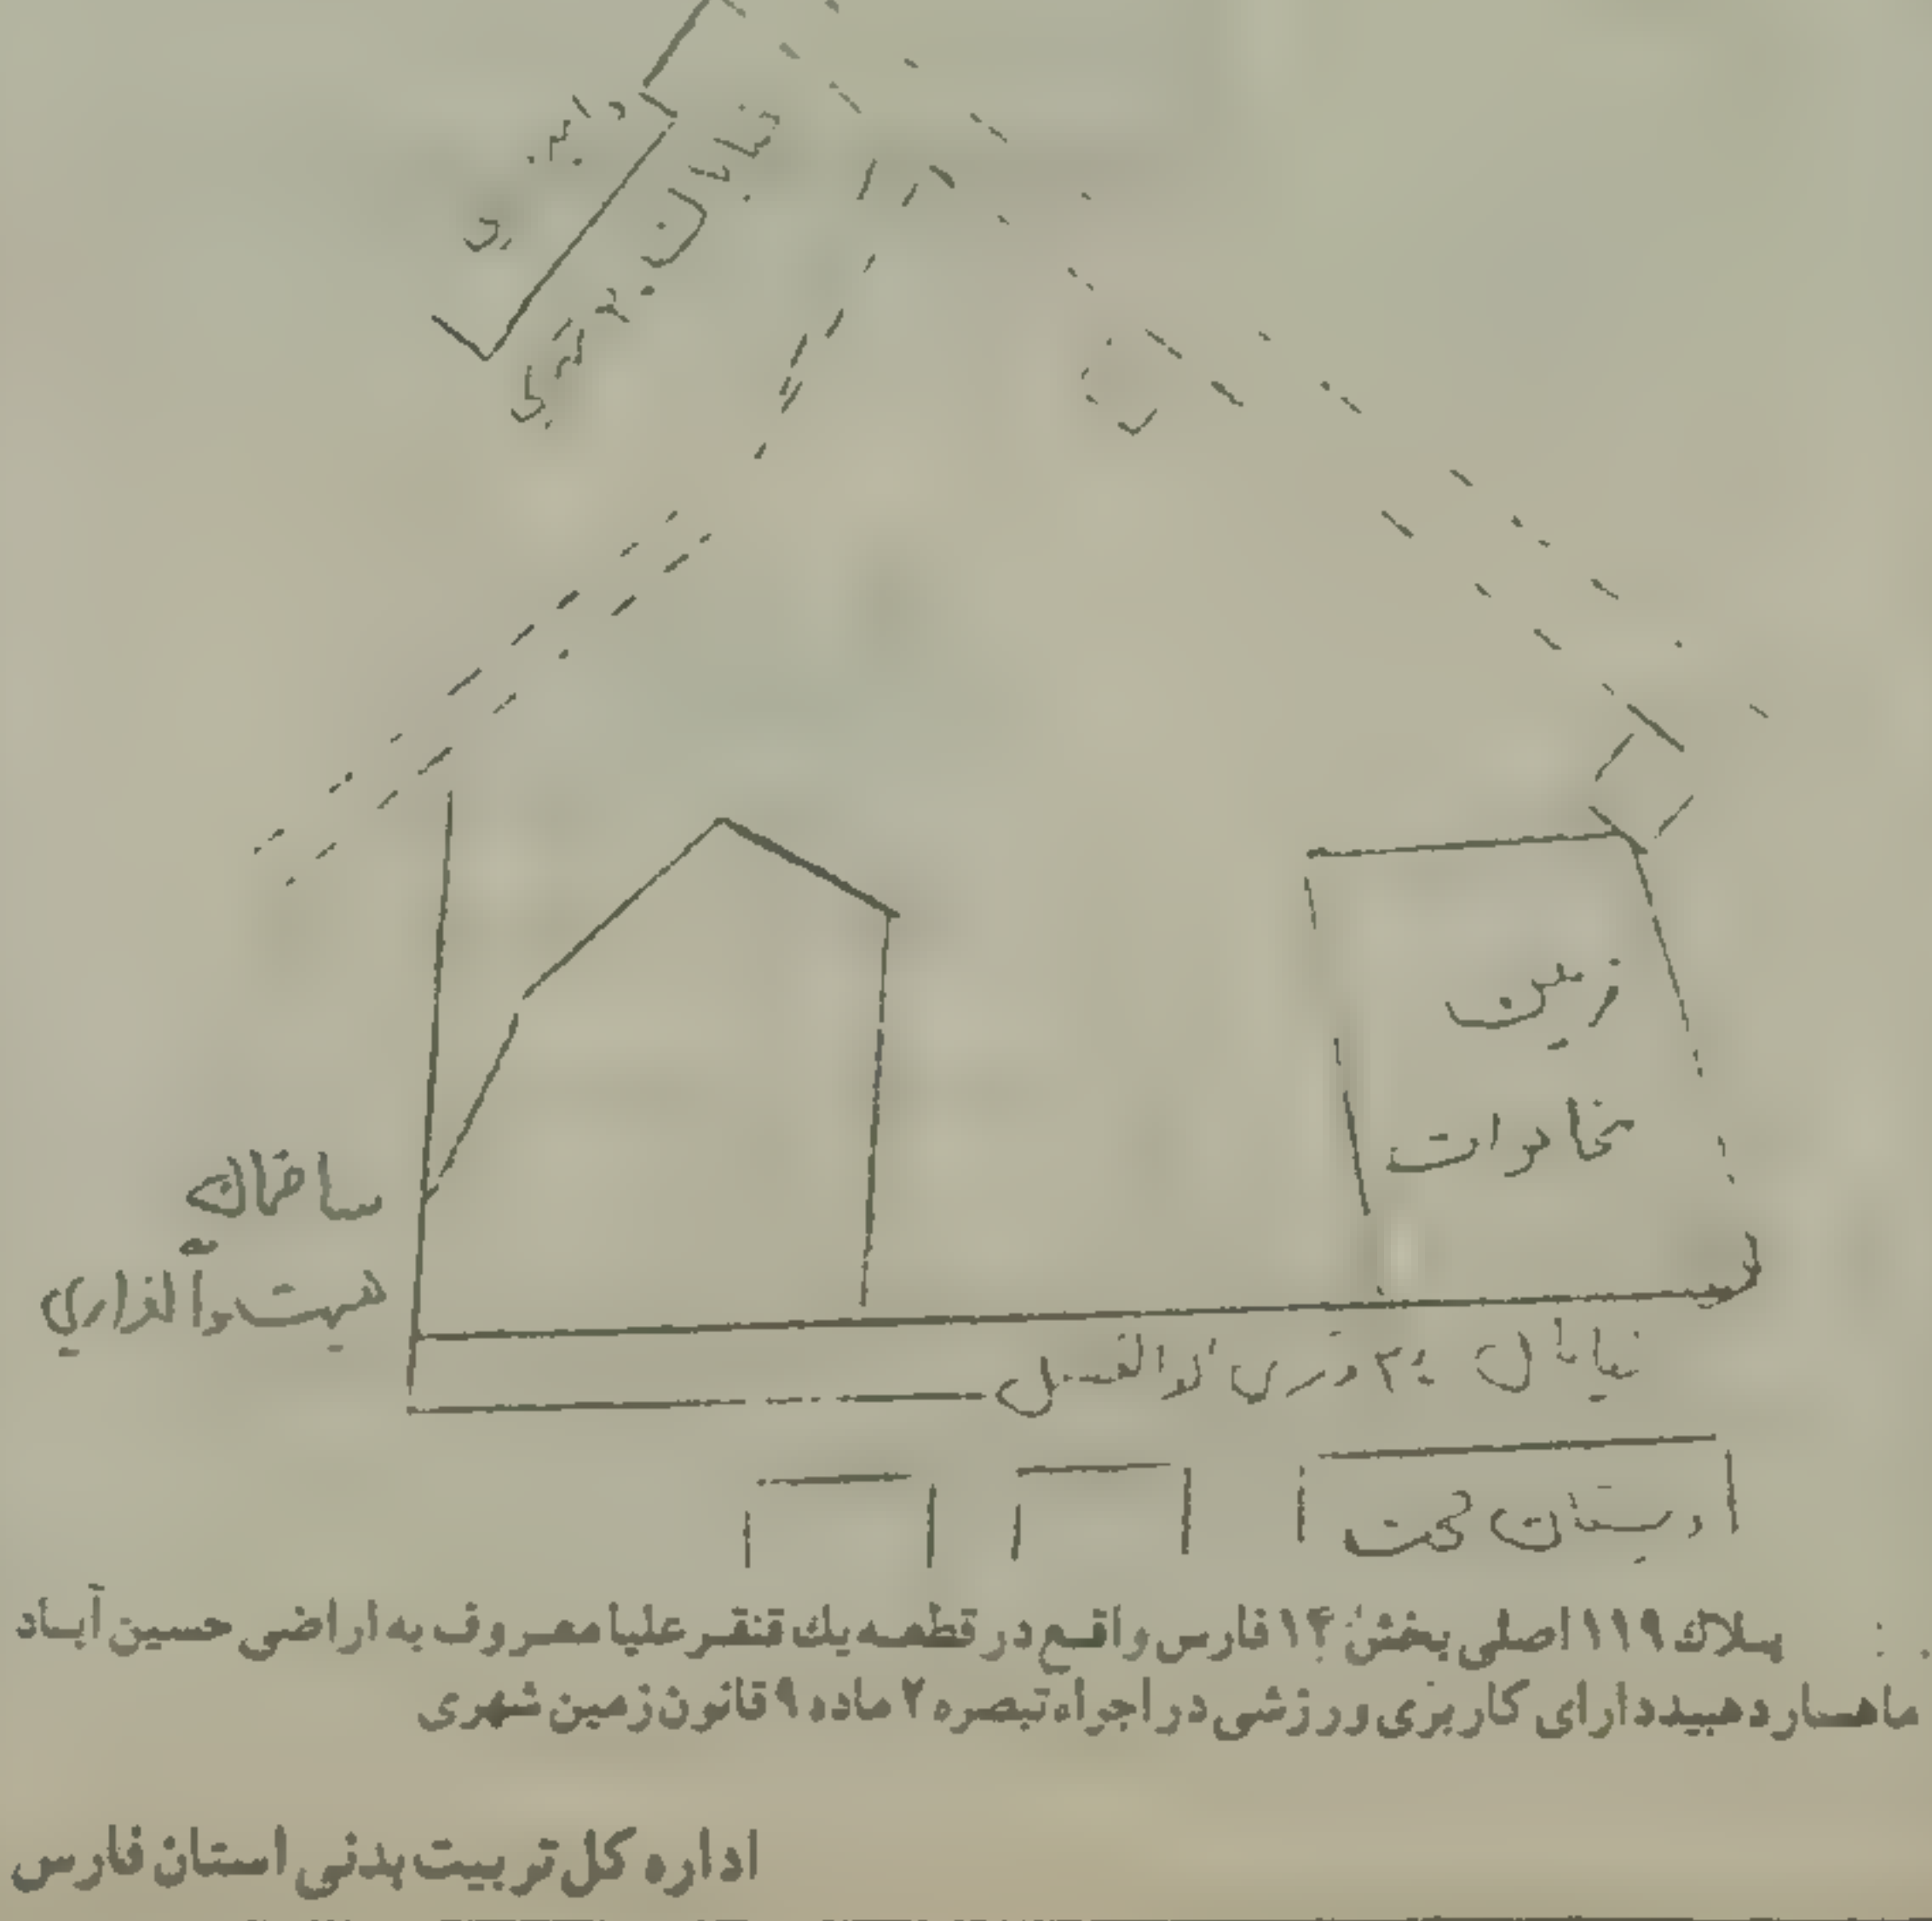 خیابان
زمین
مخابرات
ساختمان
هیئت واگذاری
خیابان ۳۰ متری ابوالفضل
دبستان حکمت
پلاک ۱۱۹ اصلی بخش ۱۴ فارس واقع در قطعه یك قنقر علیا معروف به اراضی حسین آباد
دارای کاربری ورزشی در اجراء تبصره ۲ ماده ۹ قانون زمین شهری
اداره کل تربیت بدنی استان فارس